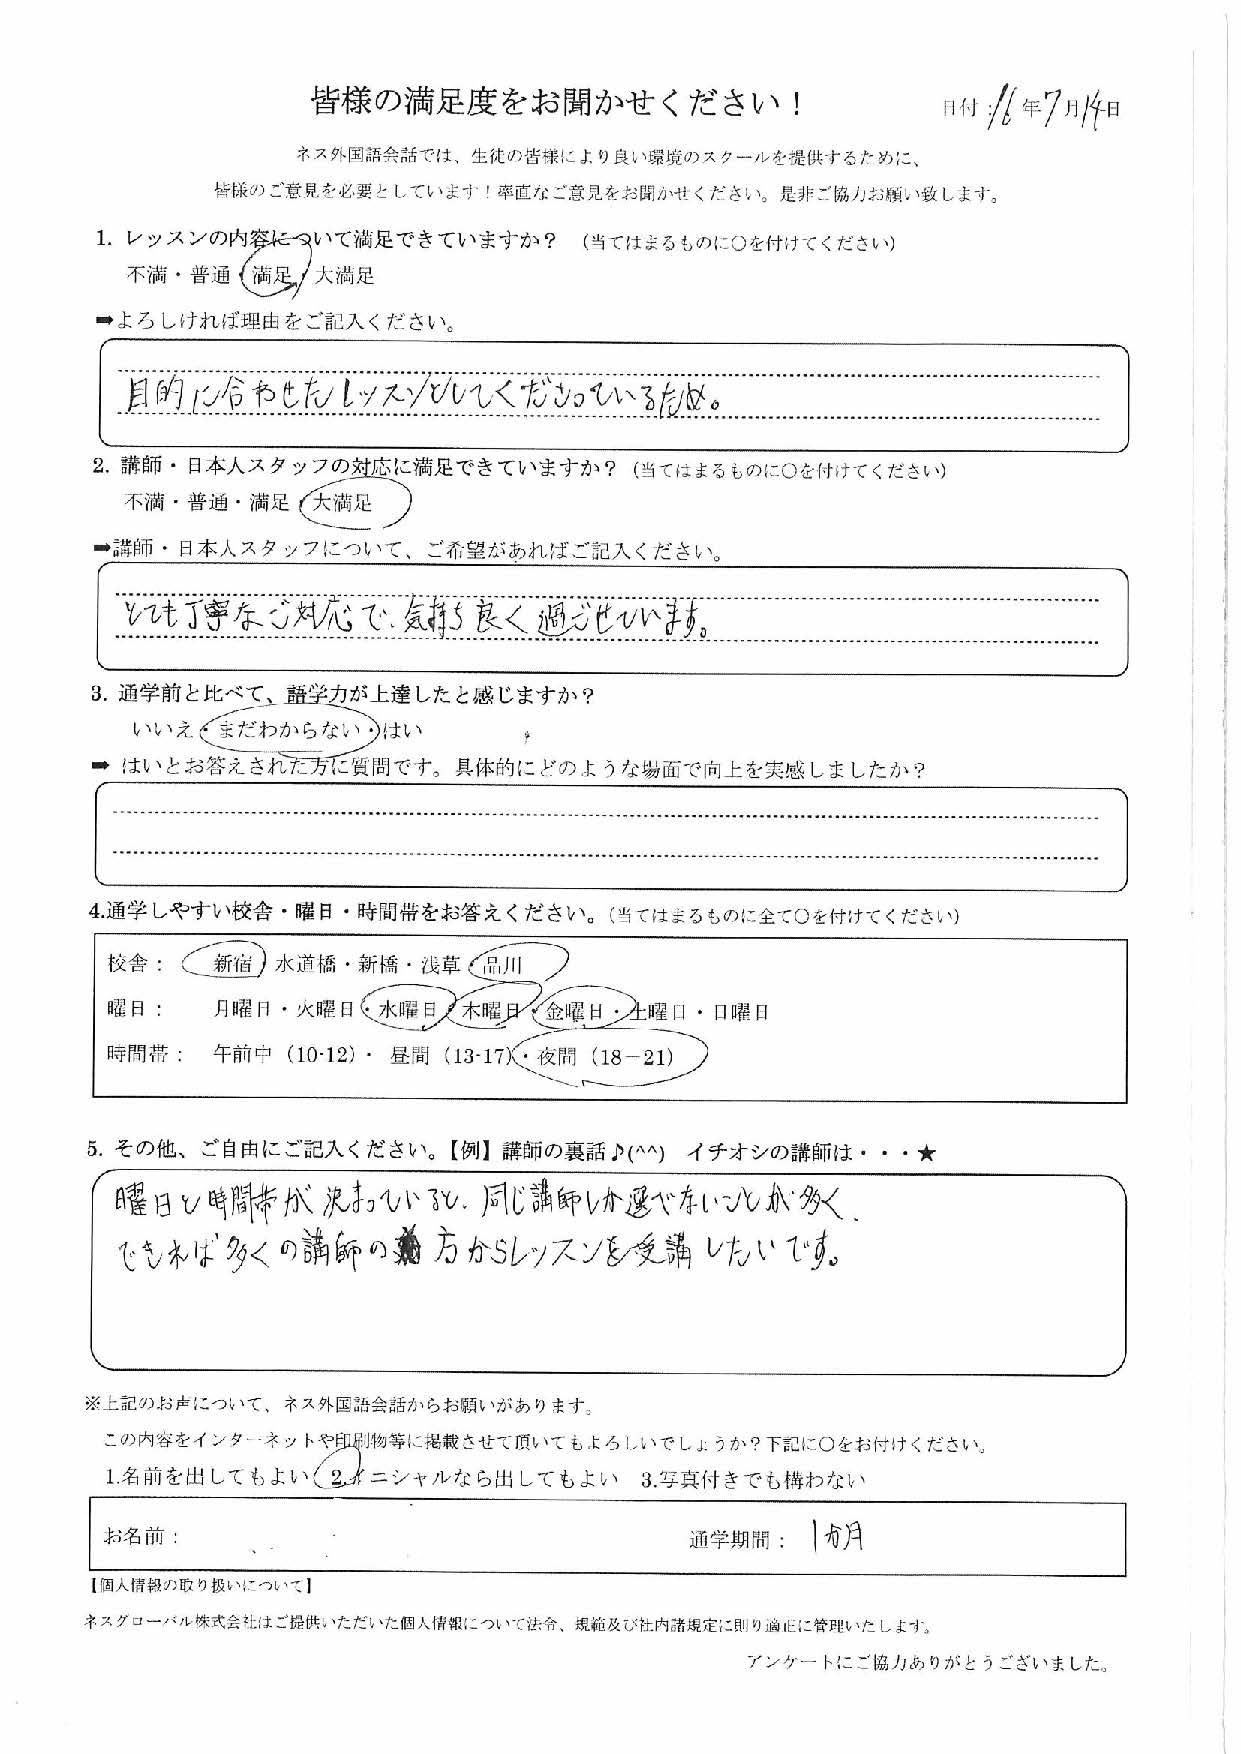 皆様の満足度をお聞かせください！
日付：16年7月14日
ネス外国語会話では、生徒の皆様により良い環境のスクールを提供するために、
皆様のご意見を必要としています！率直なご意見をお聞かせください。是非ご協力お願い致します。
1. レッスンの内容について満足できていますか？　（当てはまるものに○を付けてください）
不満・普通・満足・大満足
➡よろしければ理由をご記入ください。
目的に合わせたレッスンとしてくださっているため。
2. 講師・日本人スタッフの対応に満足できていますか？（当てはまるものに○を付けてください）
不満・普通・満足・大満足
➡講師・日本人スタッフについて、ご希望があればご記入ください。
とても丁寧なご対応で、気持ち良く過ごせています。
3. 通学前と比べて、語学力が上達したと感じますか？
いいえ・まだわからない・はい
➡ はいとお答えされた方に質問です。具体的にどのような場面で向上を実感しましたか？
4.通学しやすい校舎・曜日・時間帯をお答えください。（当てはまるものに全て○を付けてください）
校舎：　新宿・水道橋・新橋・浅草・品川
曜日：　月曜日・火曜日・水曜日・木曜日・金曜日・土曜日・日曜日
時間帯：　午前中（10-12）・ 昼間（13-17）・夜間（18－21）
5. その他、ご自由にご記入ください。【例】講師の裏話♪(^^)　イチオシの講師は・・・★
曜日と時間帯が決まっていると、同じ講師しか選べないことが多く、
できれば多くの講師の方からレッスンを受講したいです。
※上記のお声について、ネス外国語会話からお願いがあります。
この内容をインターネットや印刷物等に掲載させて頂いてもよろしいでしょうか？下記に○をお付けください。
1.名前を出してもよい　2.イニシャルなら出してもよい　3.写真付きでも構わない
お名前：　通学期間：　1か月
【個人情報の取り扱いについて】
ネスグローバル株式会社はご提供いただいた個人情報について法令、規範及び社内諸規定に則り適正に管理いたします。
アンケートにご協力ありがとうございました。